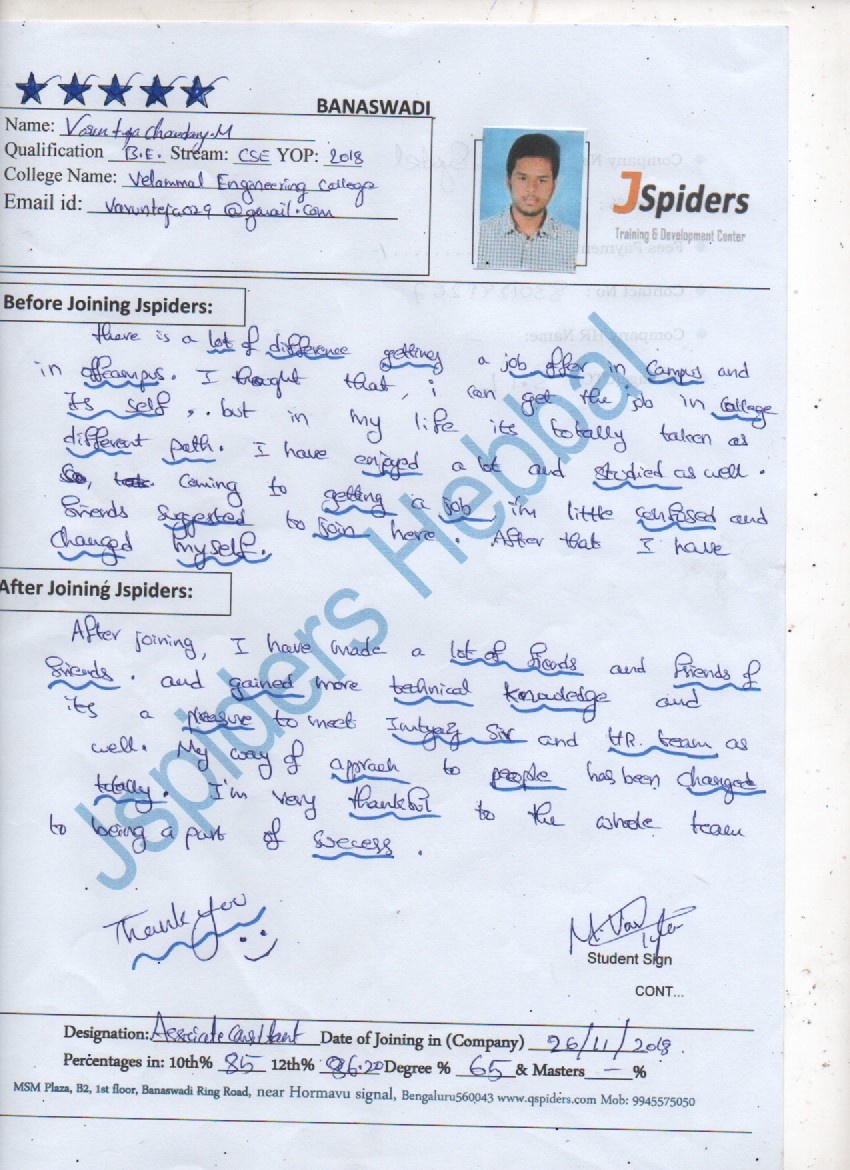 BANASWADI
Name: Varunteja Chowdary.M
Qualification B.E. Stream: CSE YOP: 2018
College Name: Velammal Engineering College
Email id: varunteja029@gmail.com
JSpiders
Training & Development Center
Before Joining Jspiders:
there is a lot of difference getting a job offer in Campus and
in offcampus. I thought that, i can get the job in College
Its self, but in my life its totally taken as
different path. I have enjoyed a lot and studied as well.
So, Coming to getting a job i'm little confused and
friends suggested to join here. After that I have
Changed myself.
After Joining Jspiders:
After joining, I have made a lot of friends and friends of
friends. and gained more technical knowledge and
its a pleasure to meet Imtyaz Sir and HR. team as
well. My way of approach to people has been changed
totally. I'm very thankful to the whole team
to being a part of success.
Jspiders Hebbal
Thank you
Student Sign
CONT...
Designation: Associate Consultant Date of Joining in (Company) 26/11/2018
Percentages in: 10th% 85 12th% 86.20 Degree % 65 & Masters — %
MSM Plaza, B2, 1st floor, Banaswadi Ring Road, near Hormavu signal, Bengaluru560043 www.qspiders.com Mob: 9945575050